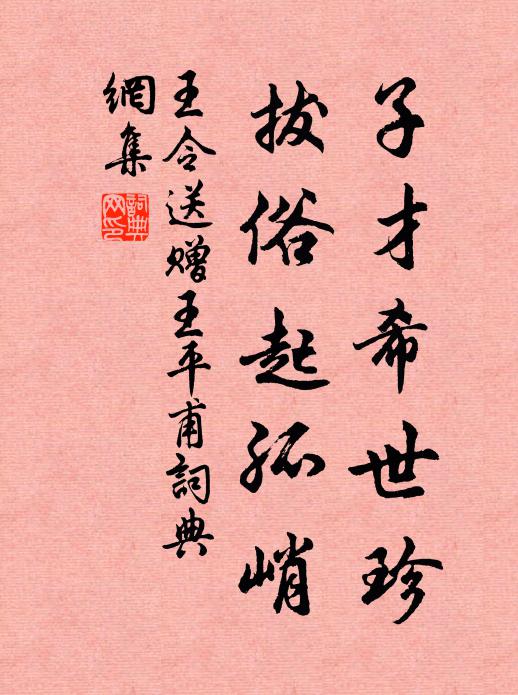 子才希世珍
拔俗起孤峭
王令送赠王平甫詞典
網集
詞典
网印